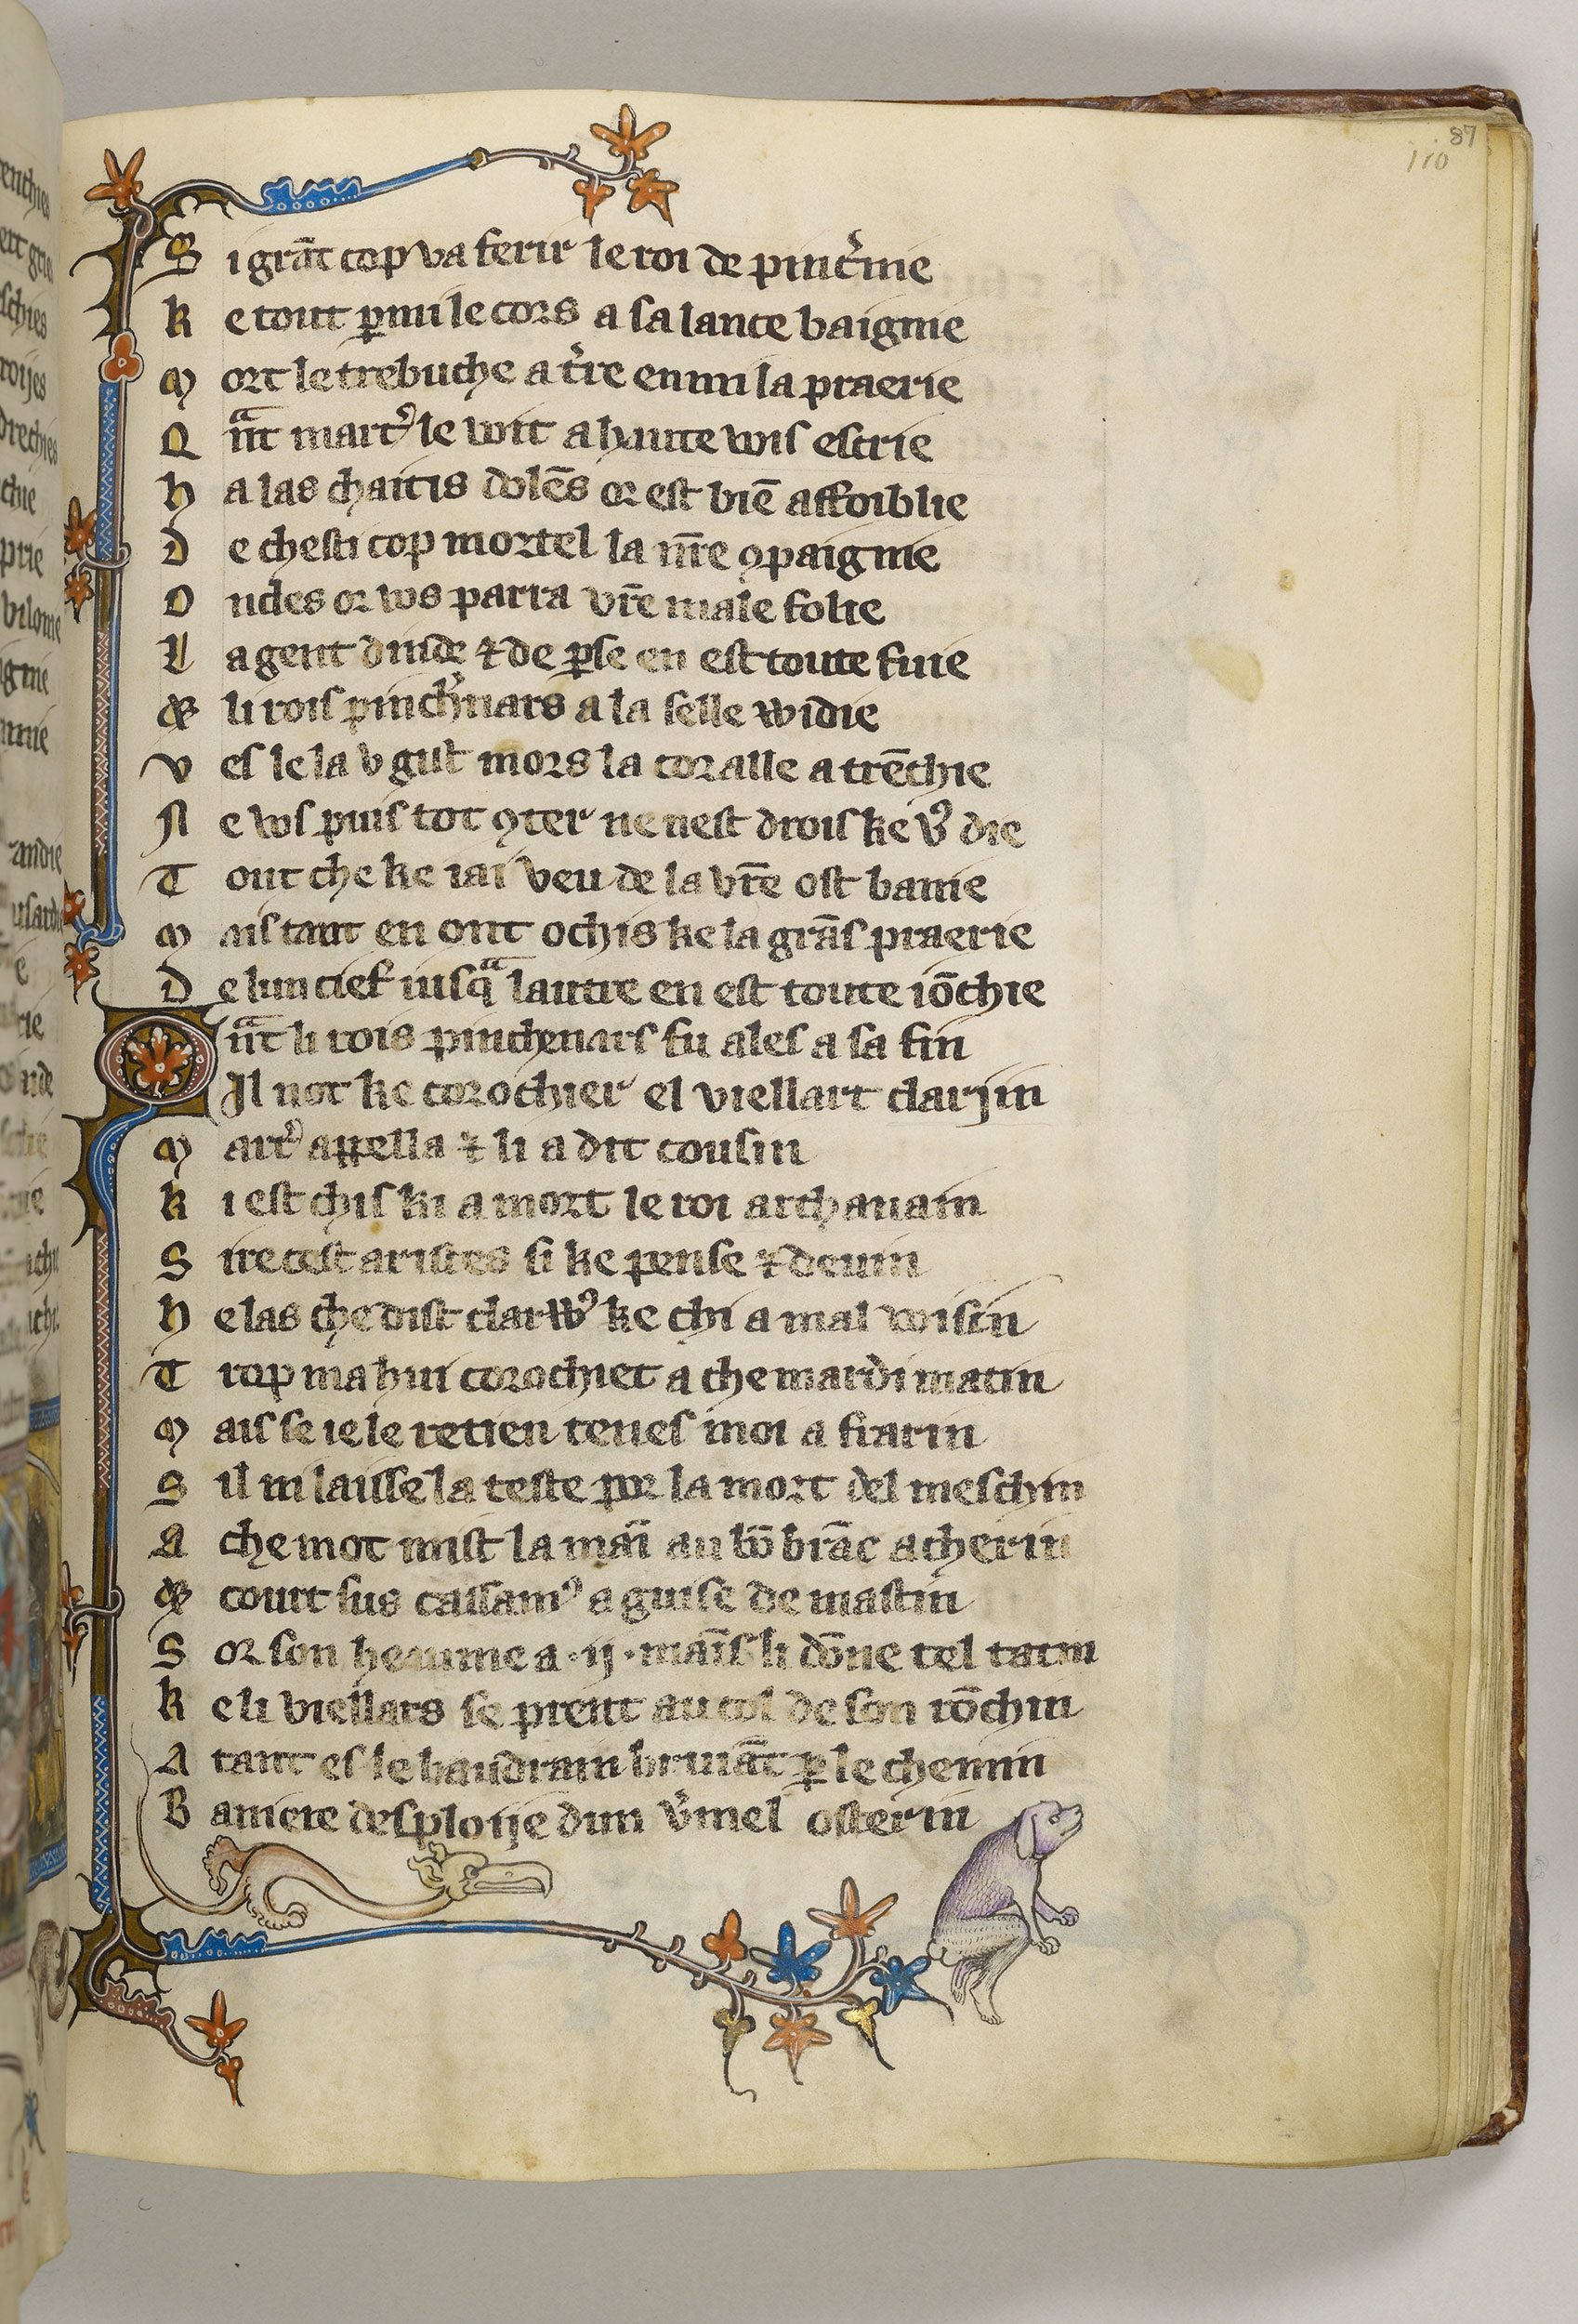 87
110
S i grāt cop va ferir le roi de pinc̓nie
K e tout ꝑmi le cors a sa lance baignie
M ort le trebuche a t̓re enmi la praerie
Q nᵃt mart᾽ le voit a haute vois escrie
H a las chaitis dolēs or est biē affoiblie
D e chesti cop mortel la nr̄e ꝯpaignie
O ndes or vos parra vr̄e male folie
L a gent dinde ⁊ de ꝑse en est toute fuie
Et li rois pinch̓nars a la selle widie
V es le la v gist mors la coralle a trēchie
N e vos puis tot ꝯter ne nest drois ke v᾽ die
T out che ke iai veu de la vr̄e ost banie
M ais tant en ont ochis ke la grās praerie
D e lun cief iusqᵃ lautre en est toute iōchie
Q nᵃt li rois pinchenars fu ales a sa fin
Il not ke corochier el viellart clarjin
M art᾽ appella ⁊ li a dit cousin
K i est chis ki a mort le roi arthanain
S ire cest aristes si ke pense ⁊ deuin
H elas che dist clarw᾽ ke chi a mal voisin
T rop ma hui corochiet a che mardi matin
M ais se ie le retien tenes moi a frarin
S il ni laisse la teste por la mort del meschin
A che mot mist la mai̅ au bō brāc acherin
Et court sus cassam᾽ a guise de mastin
S or son heaume a ·ij· mai̅s li dōne tel tatin
K e li viellars se prent au col de son rōchin
A tant es le baudrain bruiāt ꝑ le chemin
B aniere desploije dun v̓mel osterin